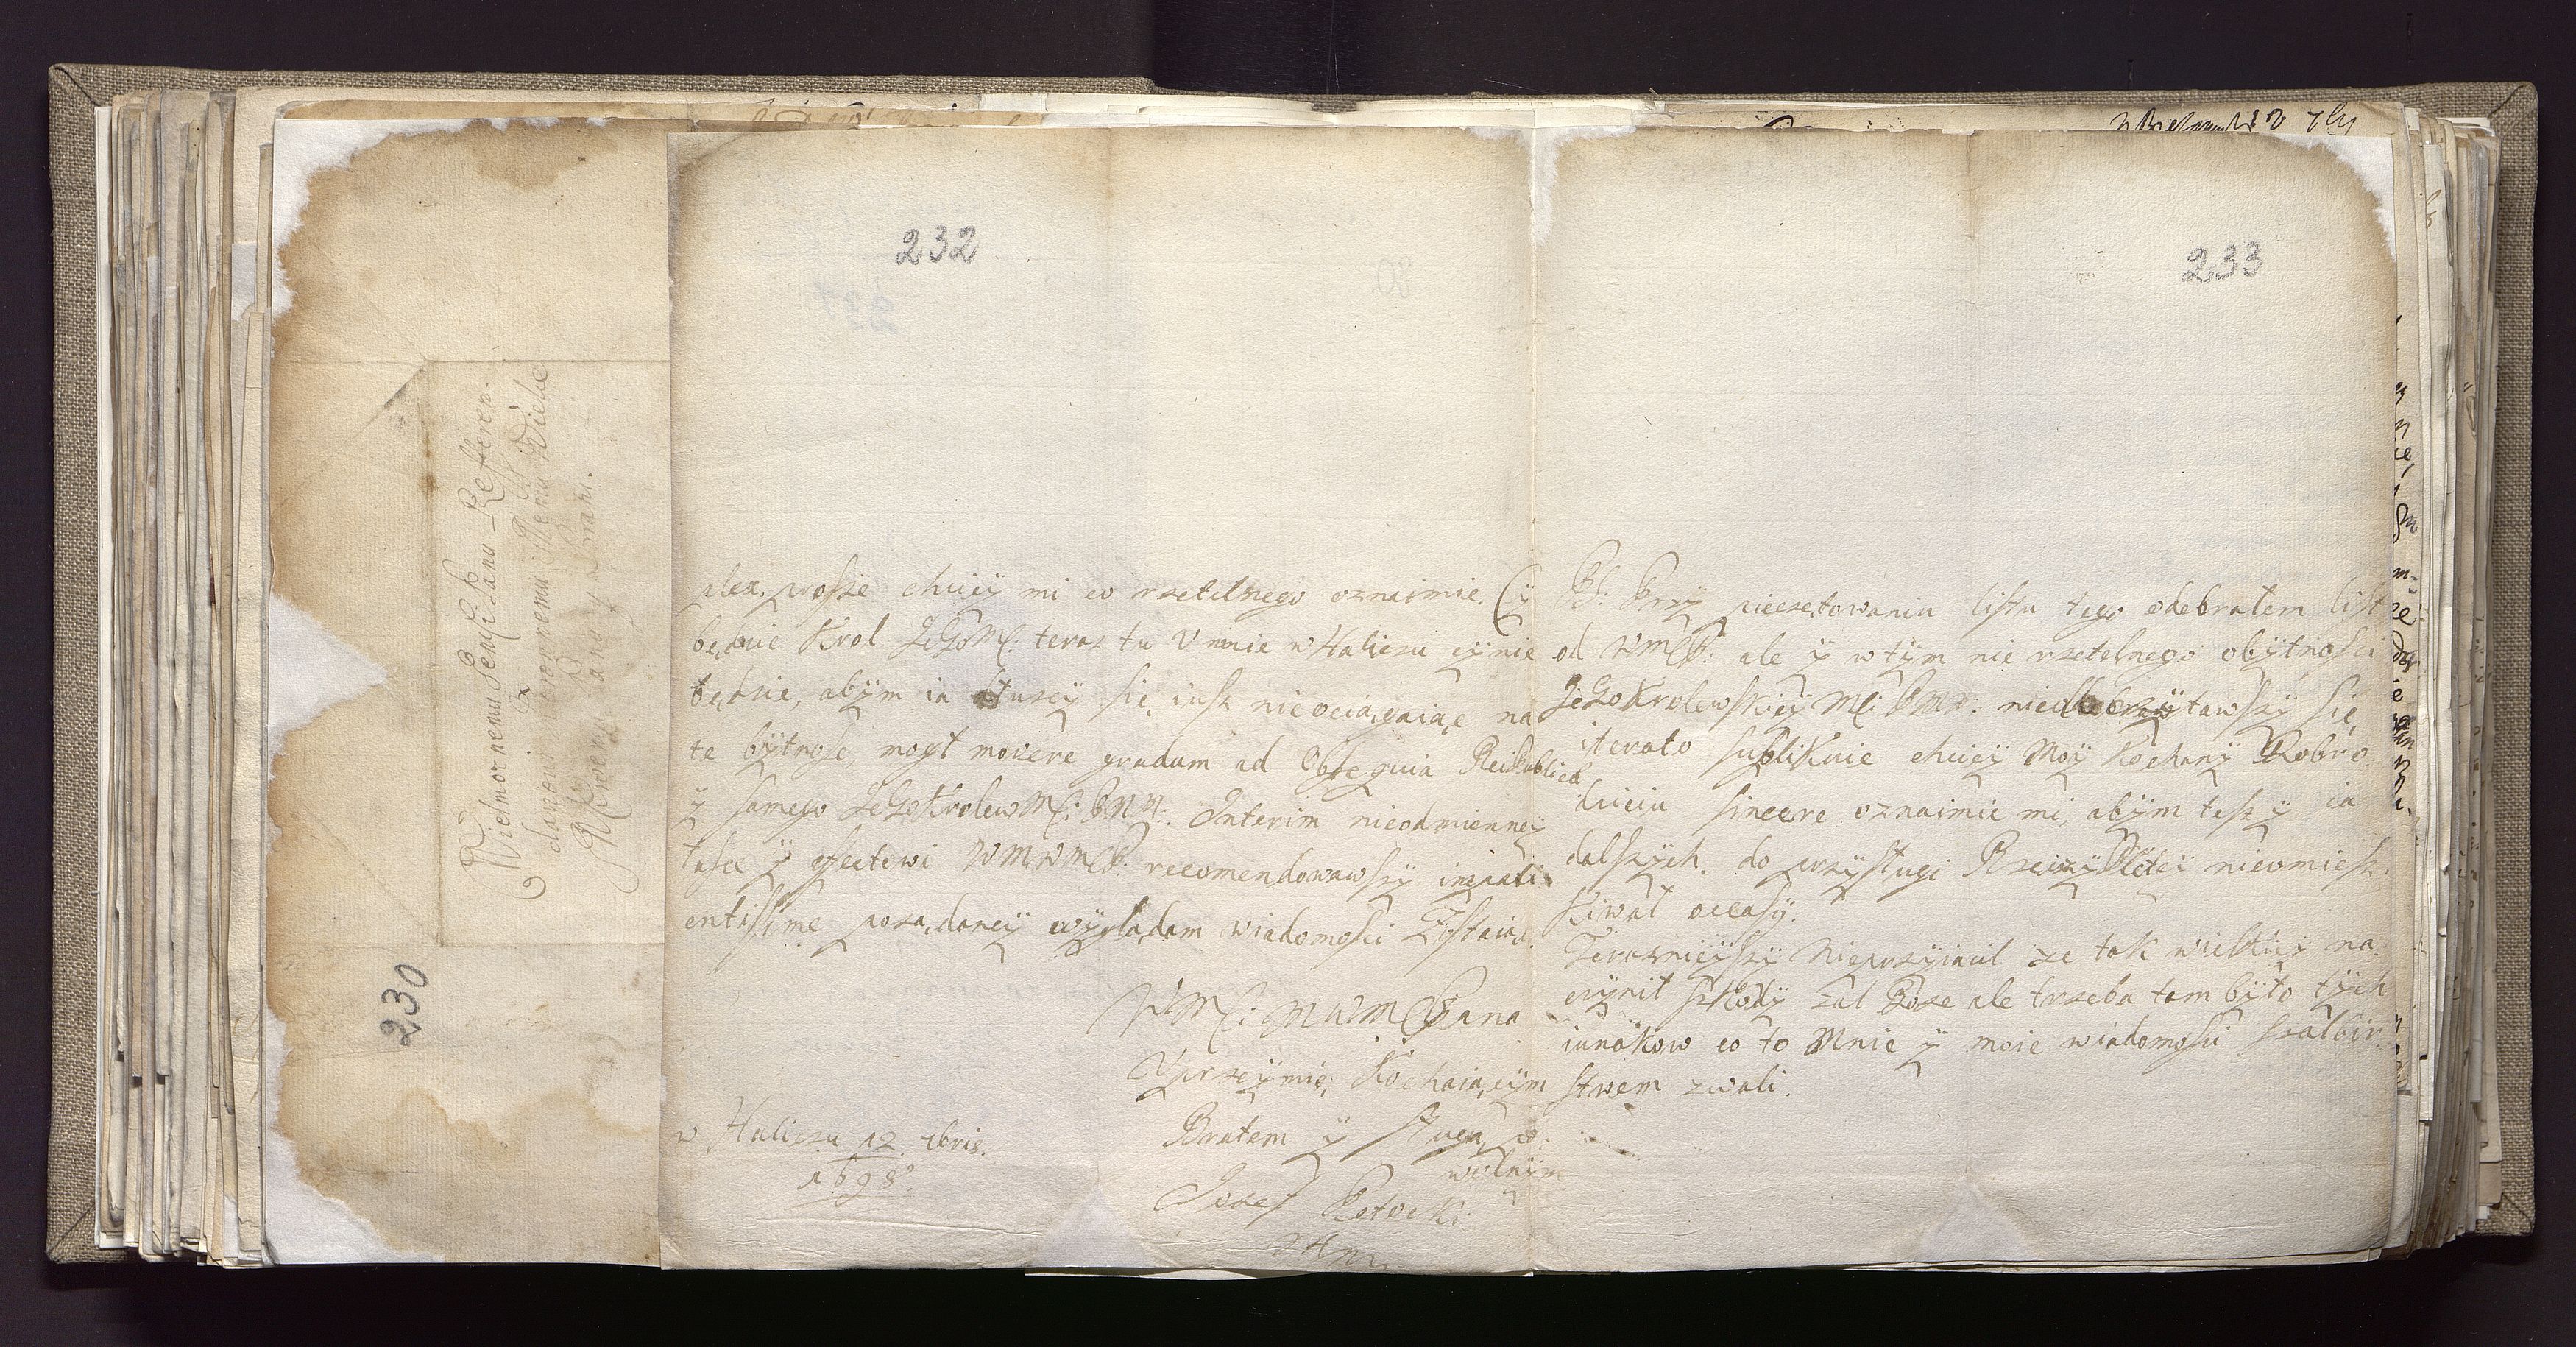 230
Wielmoznemu Sensitanu Referen-
Bratu.
232
alex. prosze chciey mi co rzetelnego oznaimic. Cÿ
będzie Krol JeGoMć: teraz tu U mnie w Haliczu cÿ nie
będzie, abÿm ia dłuzeÿ się iusz nieociągaiąc na
te bÿtnosc, mogł movere gradum ad Obsequia Reipublicae
ÿ samego JeGoKrolewMći: PMM: Interim nieodmienneÿ
łasce ÿ affectowi WMWMP: recomendowawszÿ impati-
entissime pozadaneÿ wÿgladam wiadomosci Zostaiac.
WMći: MWMPana
Uprzeÿmie, Kochaiącÿm
Bratem ÿ sługą po-
wolnÿm
Jozef Potocki
w Haliczu 12 7bris.
1698.
233
PS: Przÿ pieczetowaniu listu tego odebrałem list
od WMP: ale ÿ w tÿm nie rzetelnego obÿtnosci
JeGoKrolewskieÿ Mći PMM: niedoczÿtawszÿ się
iterato suplikuie chcieÿ Moÿ Kochanÿ Dobro
dzieiu sincere oznaimic mi, abÿm tesz ÿ ia
dalszÿch do przÿsługi RzeczÿPltteÿ nieomiesz-
kiwał occasÿ.
Teraznieÿszÿ Nieprzÿiaciel ze tak wielkieÿ na-
czÿnił szkodÿ zal Boze ale trzeba tam bÿło tÿch
iunakow co to Mnie ÿ moie wiadomosci szalbir-
stwem zwali.